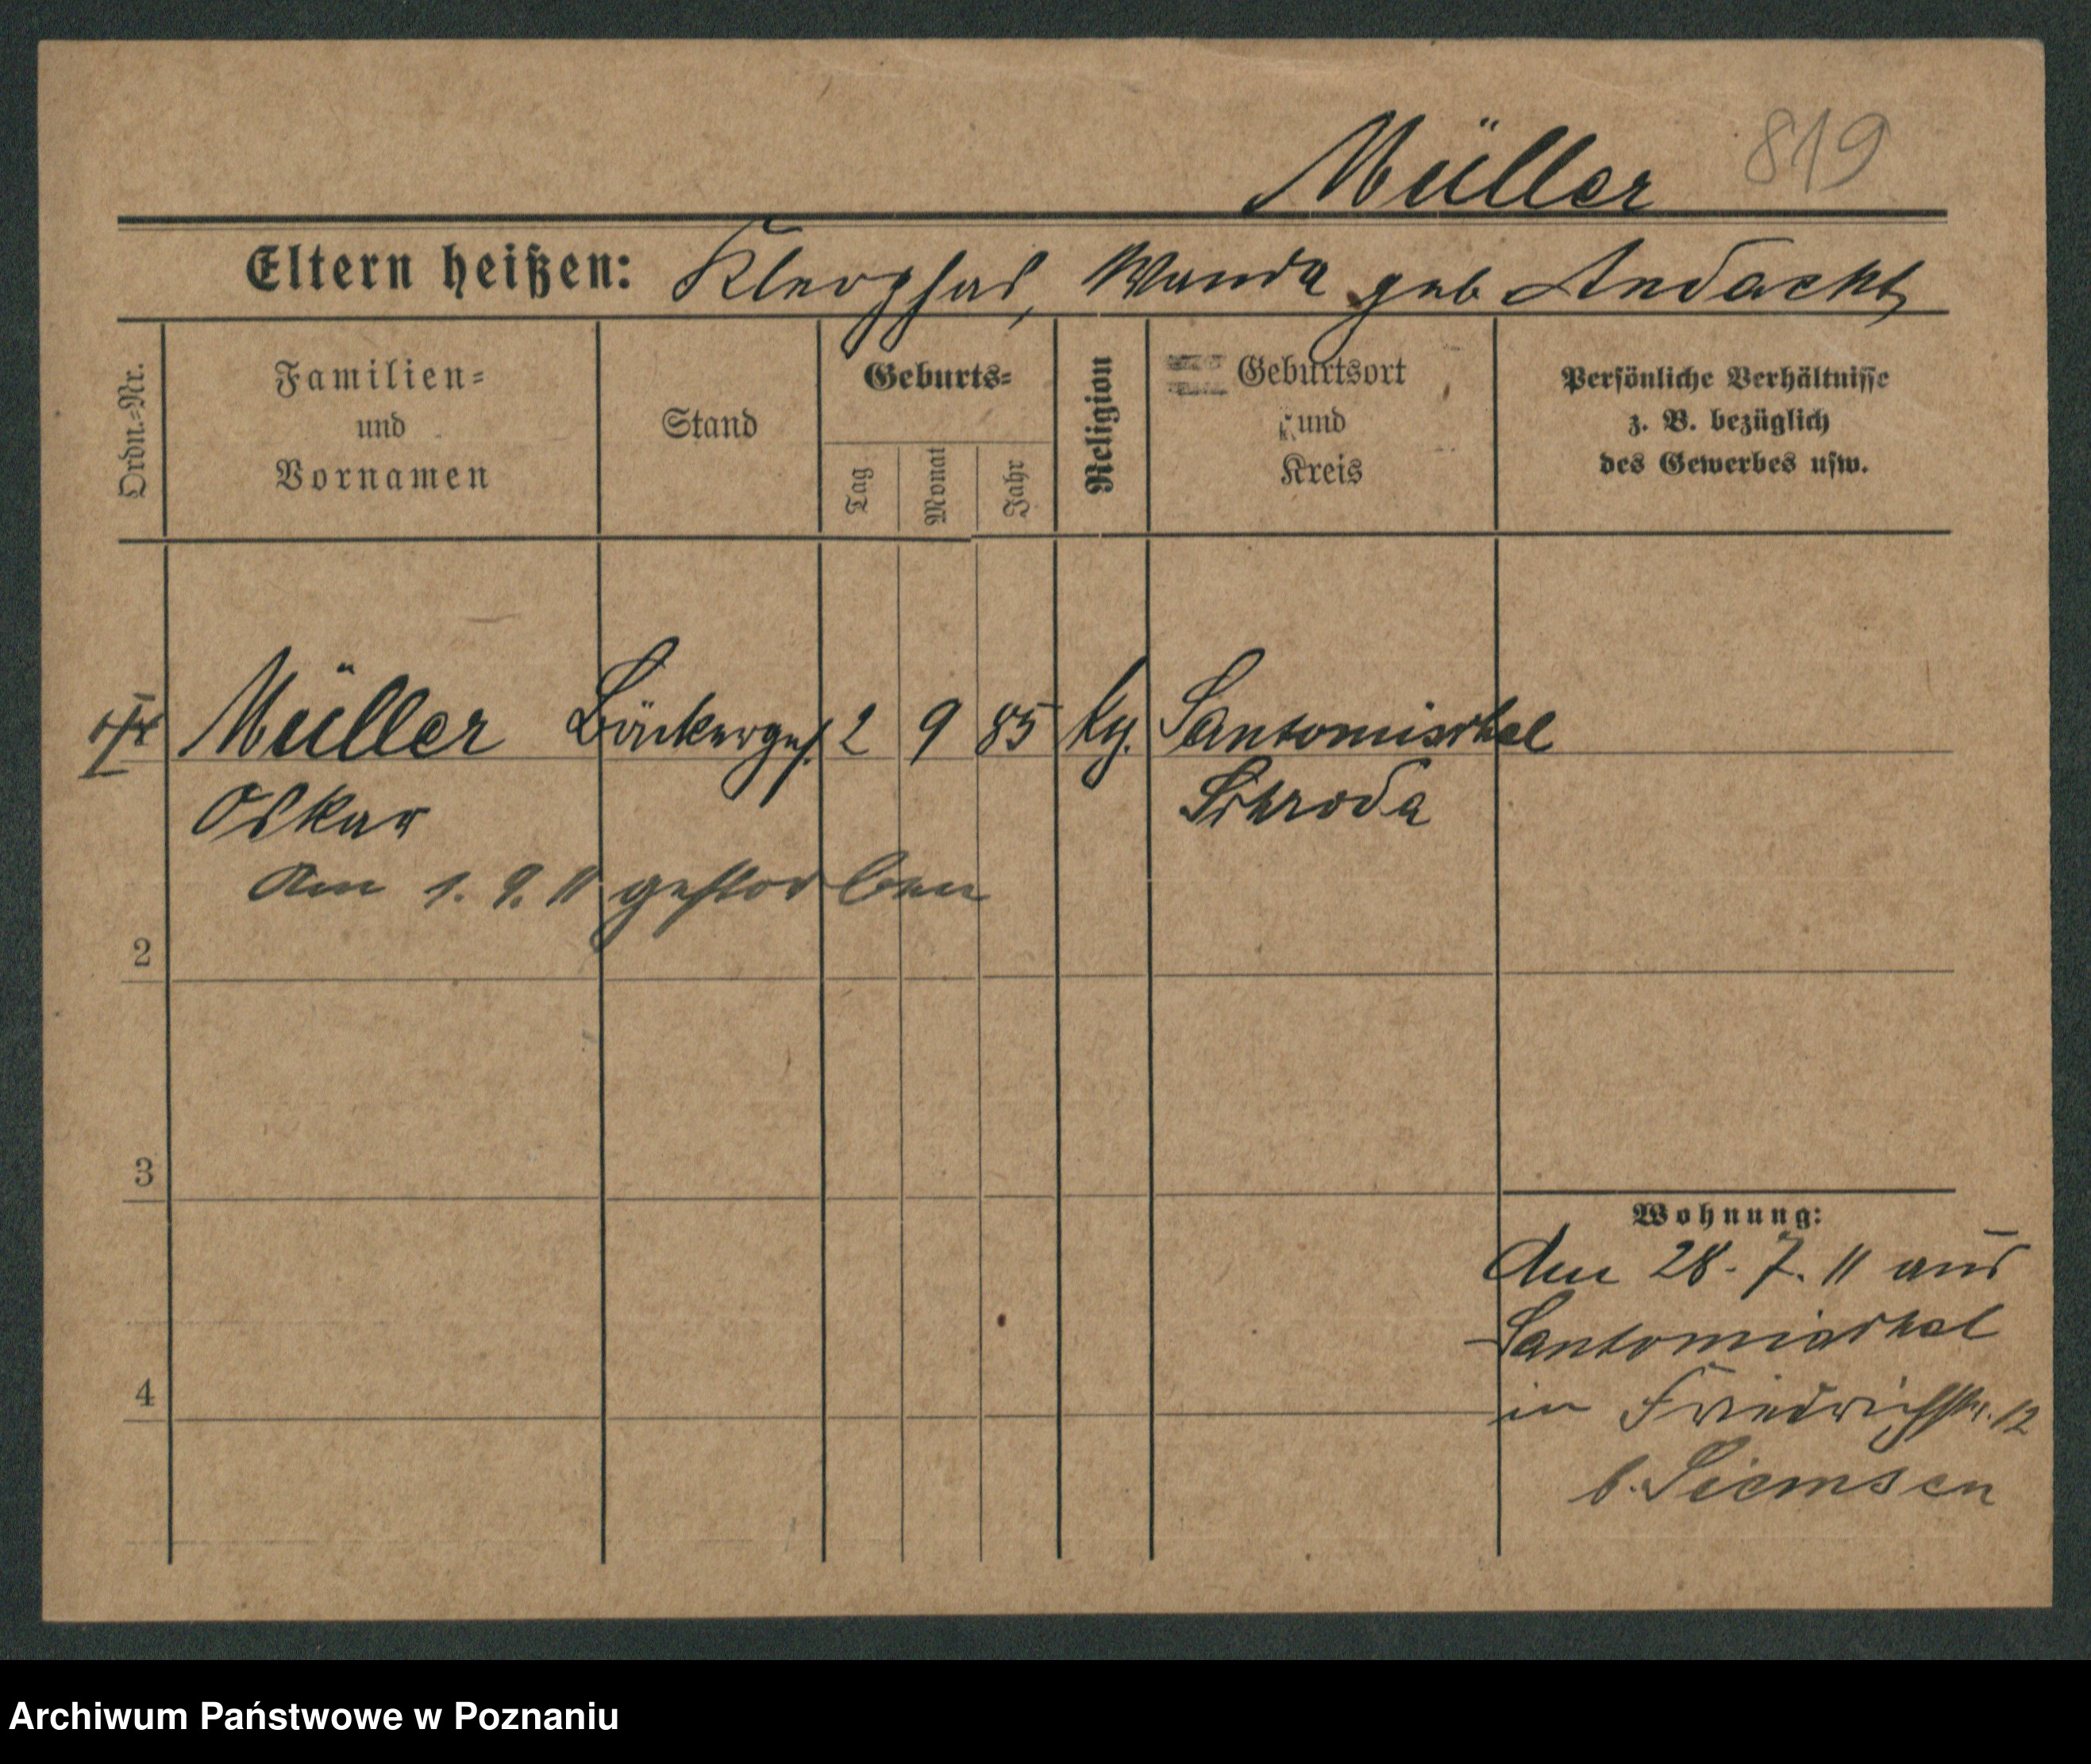 Müller 819
Eltern heißen: Kleophas, Wanda geb Andacht
Ordn.=Nr.
Familien=
und
Vornamen
Stand
Geburts=
Tag
Monat
Jahr
Religion
Geburtsort
und
Kreis
Persönliche Verhältnisse
z. B. bezüglich
des Gewerbes usw.
Müller Bäckerges. 2 9 85 Santomischel
Oskar Schroda
Am 1. 9. 11 gestorben
2
3
4
Wohnung:
Am 28. 7. 11 aus
Santomischel
in Friedrichstr. 12
b. Siemsen
Archiwum Państwowe w Poznaniu